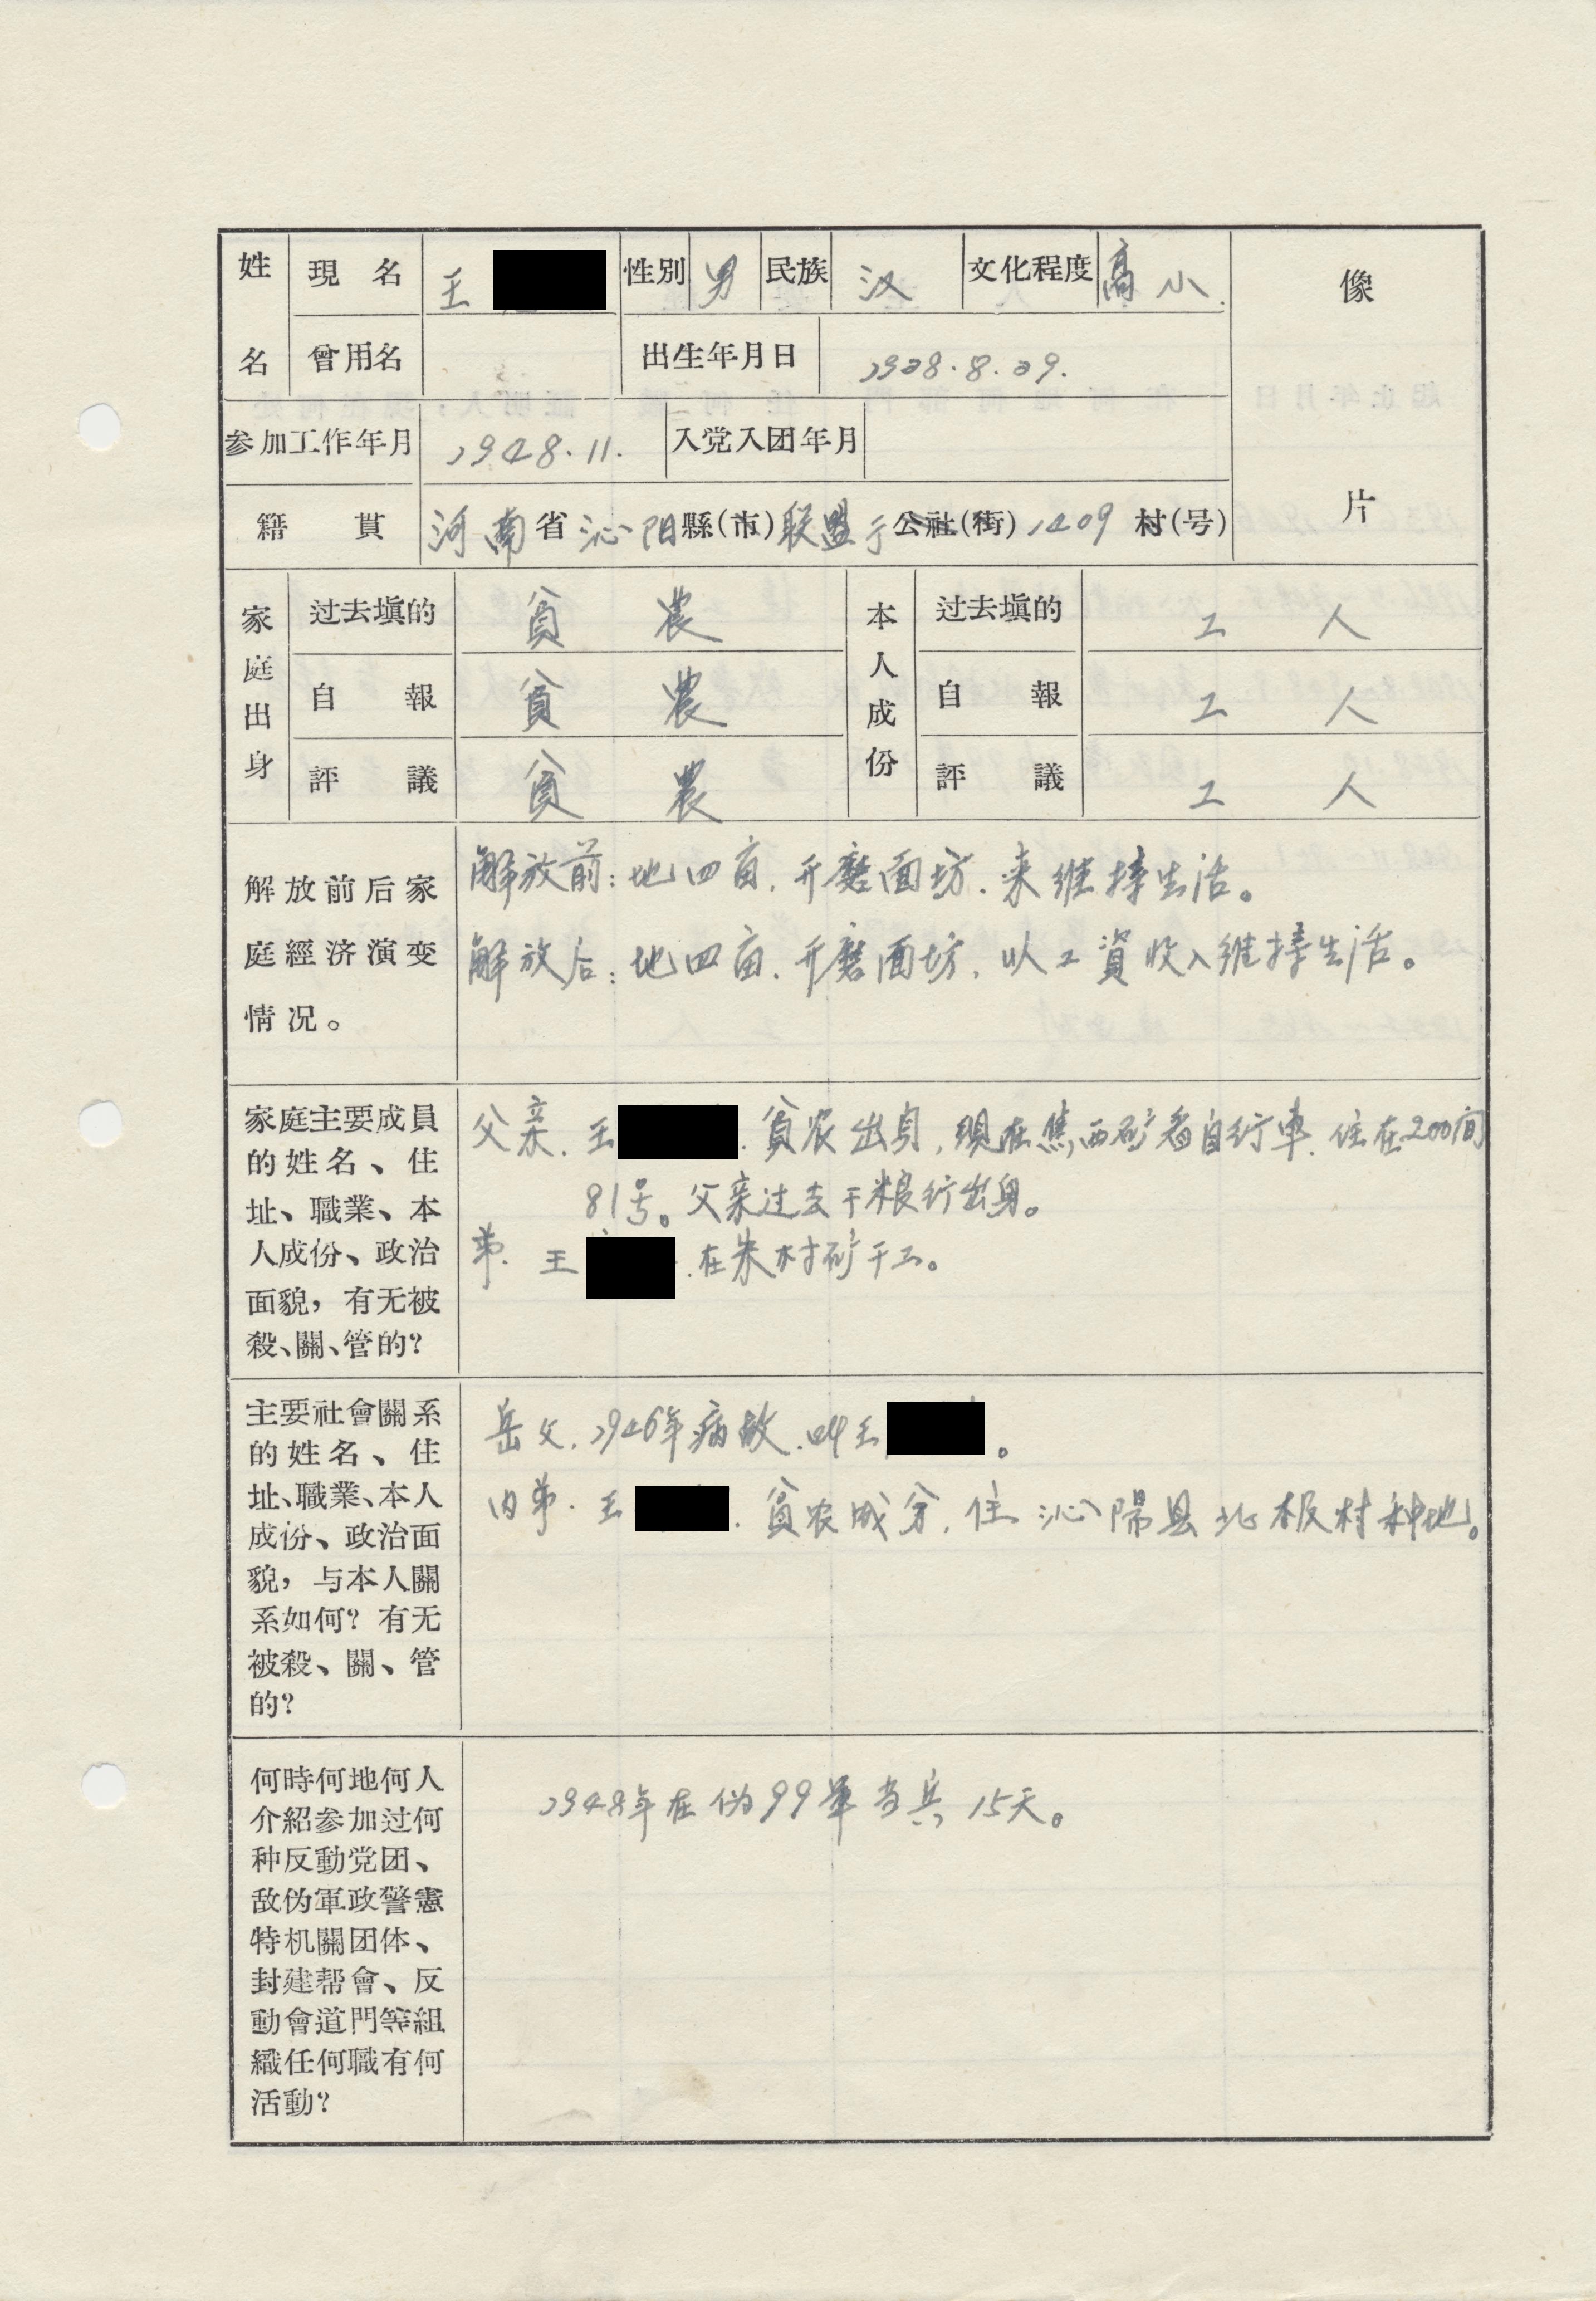 姓名 現名 王 性別 男 民族 汉 文化程度 高小. 像片
曾用名 出生年月日 1928.8.29.
参加工作年月 1948.11. 入党入团年月
籍貫 河南省沁阳縣(市)联盟于公社(街)1409村(号)
家庭出身 过去填的 貧農 本人成份 过去填的 工人
自報 貧農 自報 工人
評議 貧農 評議 工人
解放前后家
庭經济演变
情况。
解放前：地四亩.开磨面坊.来维持生活。
解放后：地四亩.开磨面坊.以工資收入维持生活。
家庭主要成員
的姓名、住
址、職業、本
人成份、政治
面貌，有无被
殺、關、管的?
父亲.王 .貧农出身,現在焦西矿看自行車.住在200间
81号。父亲过去干粮行出身。
弟.王 .在朱村矿干工。
主要社會關系
的姓名、住
址、職業、本人
成份、政治面
貌，与本人關
系如何？有无
被殺、關、管
的?
岳父.1946年病故.叫王 。
内弟.王 .貧农成分.住沁陽县北板村种地。
何時何地何人
介紹参加过何
种反動党团、
敌伪軍政警憲
特机關团体、
封建帮會、反
動會道門等組
織任何職有何
活動?
1948年在伪99軍当兵15天。